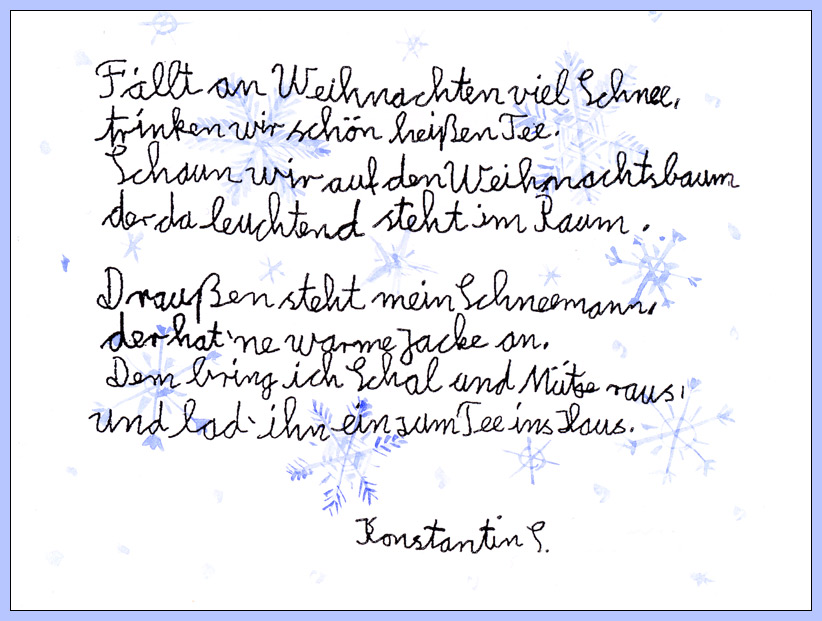 Fällt an Weihnachten viel Schnee,
trinken wir schön heißen Tee.
Schaun wir auf den Weihnachtsbaum
der da leuchtend steht im Raum.
Draußen steht mein Schneemann,
der hat 'ne warme Jacke an.
Dem bring ich Schal und Mütze raus,
und lad' ihn ein zum Tee ins Haus.
Konstantin S.